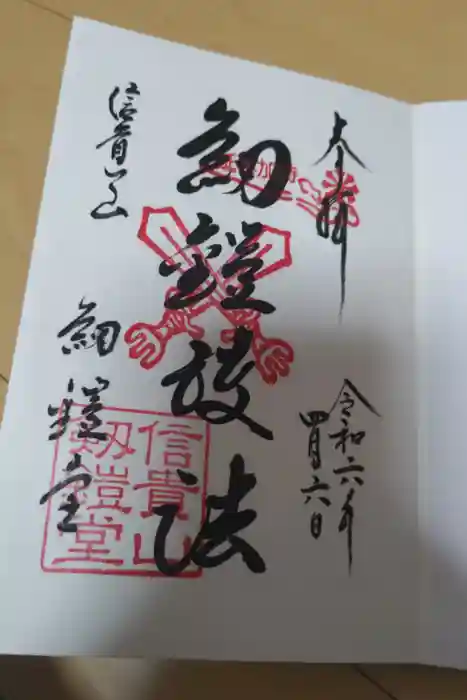 奉拝
令和六年
四月六日
劔鎧護法
信貴山
劔鎧堂
信貴山
劔鎧堂